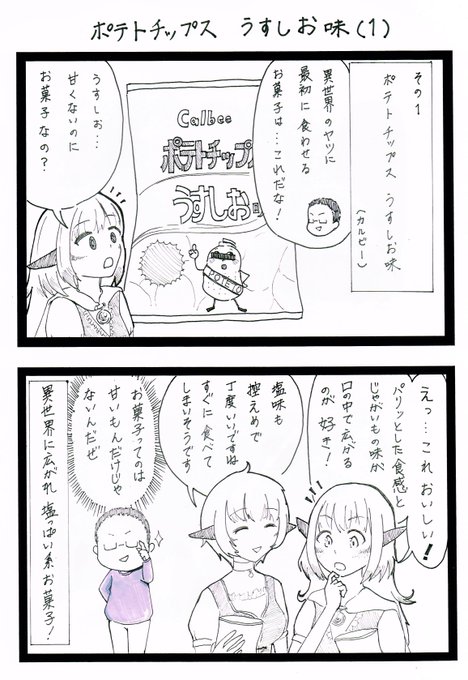 ポテトチップス うすしお味(1)
その1
ポテトチップス うすしお味
(カルビー)
異世界のヤツに
最初に食わせる
お菓子は…これだな!
Calbee
ポテトチップ
うすしお味
POTETO
うすしお…
甘くないのに
お菓子なの?
えっ…これおいしい!
パリッとした食感と
じゃがいもの味が
口の中で広がる
のが好き!
塩味も
控えめで
丁度いいですね
すぐに食べて
しまいそうです
お菓子ってのは
甘いもんだけじゃ
ないんだぜ
異世界に広がれ 塩っぱい系お菓子!